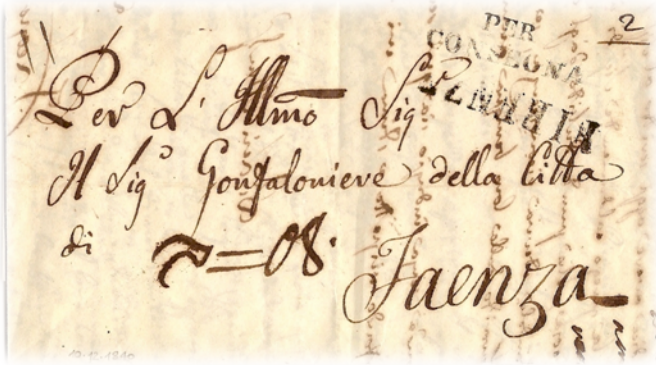 2
PER
CONSEGNA
Per L' Illmo Sigr
Il Sigr Gonfaloniere della Città
di = 08.
Faenza